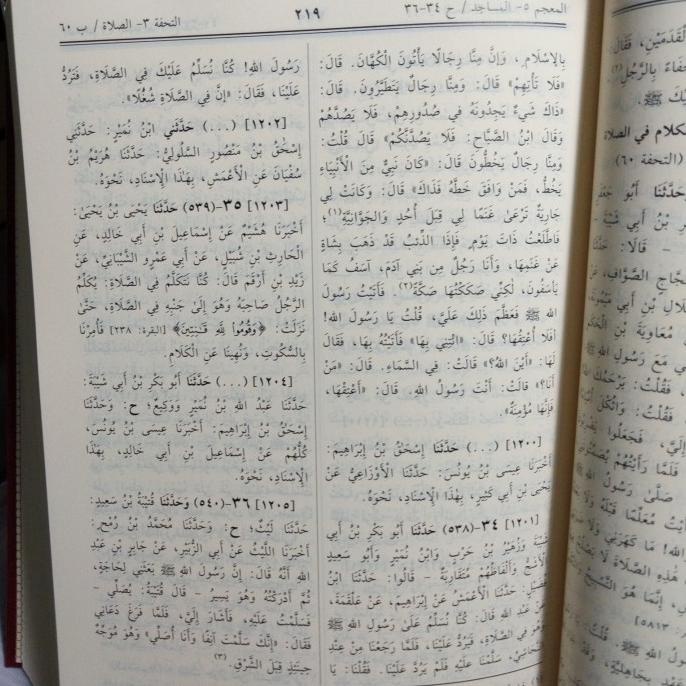 المعجم ٥- المساجد / ح ٣٤-٣٦
٢١٩
التحفة ٣- الصلاة / ب ٦٠
بِالإِسْلَامِ، وَإِنَّ مِنَّا رِجَالًا يَأْتُونَ الْكُهَّانَ. قَالَ:
«فَلَا تَأْتِهِمْ» قَالَ: وَمِنَّا رِجَالٌ يَتَطَيَّرُونَ. قَالَ:
«ذَاكَ شَيْءٌ يَجِدُونَهُ فِي صُدُورِهِمْ، فَلَا يَصُدَّنَّهُمْ
وَقَالَ ابْنُ الصَّبَّاحِ: فَلَا يَصُدَّنَّكُمْ» قَالَ قُلْتُ:
وَمِنَّا رِجَالٌ يَخُطُّونَ قَالَ: «كَانَ نَبِيٌّ مِنَ الْأَنْبِيَاءِ
يَخُطُّ، فَمَنْ وَافَقَ خَطَّهُ فَذَاكَ» قَالَ: وَكَانَتْ لِي
جَارِيَةٌ تَرْعَىٰ غَنَمًا لِي قِبَلَ أُحُدٍ وَالْجَوَّانِيَّةِ(١)؛
فَاطَّلَعْتُ ذَاتَ يَوْمٍ فَإِذَا الذِّئْبُ قَدْ ذَهَبَ بِشَاةٍ
عَنْ غَنَمِهَا، وَأَنَا رَجُلٌ مِنْ بَنِي آدَمَ، آسَفُ كَمَا
يَأْسَفُونَ، لَكِنِّي صَكَكْتُهَا صَكَّةً(٢). فَأَتَيْتُ رَسُولَ
اللهِ ﷺ فَعَظَّمَ ذَلِكَ عَلَيَّ، قُلْتُ يَا رَسُولَ اللهِ!
أَفَلَا أُعْتِقُهَا؟ قَالَ: «ائْتِنِي بِهَا» فَأَتَيْتُهُ بِهَا، فَقَالَ
لَهَا: «أَيْنَ اللهُ؟» قَالَتْ: فِي السَّمَاءِ. قَالَ: «مَنْ
أَنَا؟» قَالَتْ: أَنْتَ رَسُولُ اللهِ. قَالَ: «أَعْتِقْهَا،
فَإِنَّهَا مُؤْمِنَةٌ».
[١٢٠٠] (...) حَدَّثَنَا إِسْحٰقُ بْنُ إِبْرَاهِيمَ:
أَخْبَرَنَا عِيسَى بْنُ يُونُسَ: حَدَّثَنَا الْأَوْزَاعِيُّ عَنْ
يَحْيَى بْنِ أَبِي كَثِيرٍ، بِهَذَا الْإِسْنَادِ، نَحْوَهُ.
[١٢٠١] ٣٤-(٥٣٨) حَدَّثَنَا أَبُو بَكْرِ بْنُ أَبِي
شَيْبَةَ وَزُهَيْرُ بْنُ حَرْبٍ وَابْنُ نُمَيْرٍ وَأَبُو سَعِيدٍ
الْأَشَجُّ وَأَلْفَاظُهُمْ مُتَقَارِبَةٌ - قَالُوا: حَدَّثَنَا ابْنُ
فُضَيْلٍ: حَدَّثَنَا الْأَعْمَشُ عَنْ إِبْرَاهِيمَ، عَنْ عَلْقَمَةَ،
عَنْ عَبْدِ اللهِ قَالَ: كُنَّا نُسَلِّمُ عَلَىٰ رَسُولِ اللهِ ﷺ
وَهُوَ فِي الصَّلَاةِ، فَيَرُدُّ عَلَيْنَا، فَلَمَّا رَجَعْنَا مِنْ عِنْدِ
النَّجَاشِيِّ، سَلَّمْنَا عَلَيْهِ فَلَمْ يَرُدَّ عَلَيْنَا. فَقُلْنَا: يَا
رَسُولَ اللهِ! كُنَّا نُسَلِّمُ عَلَيْكَ فِي الصَّلَاةِ، فَتَرُدُّ
عَلَيْنَا، فَقَالَ: «إِنَّ فِي الصَّلَاةِ شُغُلًا».
[١٢٠٢] (...) حَدَّثَنِي ابْنُ نُمَيْرٍ: حَدَّثَنِي
إِسْحٰقُ بْنُ مَنْصُورٍ السَّلُولِيُّ: حَدَّثَنَا هُرَيْمُ بْنُ
سُفْيَانَ عَنِ الْأَعْمَشِ، بِهَذَا الْإِسْنَادِ، نَحْوَهُ.
[١٢٠٣] ٣٥-(٥٣٩) حَدَّثَنَا يَحْيَى بْنُ يَحْيَىٰ:
أَخْبَرَنَا هُشَيْمٌ عَنْ إِسْمَاعِيلَ بْنِ أَبِي خَالِدٍ، عَنِ
الْحَارِثِ بْنِ شُبَيْلٍ، عَنْ أَبِي عَمْرٍو الشَّيْبَانِيِّ، عَنْ
زَيْدِ بْنِ أَرْقَمَ قَالَ: كُنَّا نَتَكَلَّمُ فِي الصَّلَاةِ: يُكَلِّمُ
الرَّجُلُ صَاحِبَهُ وَهُوَ إِلَىٰ جَنْبِهِ فِي الصَّلَاةِ، حَتَّىٰ
نَزَلَتْ: ﴿وَقُومُوا لِلَّهِ قَانِتِينَ﴾ [البقرة: ٢٣٨] فَأُمِرْنَا
بِالسُّكُوتِ، وَنُهِينَا عَنِ الْكَلَامِ.
[١٢٠٤] (...) حَدَّثَنَا أَبُو بَكْرِ بْنُ أَبِي شَيْبَةَ:
حَدَّثَنَا عَبْدُ اللهِ بْنُ نُمَيْرٍ وَوَكِيعٌ؛ ح: وَحَدَّثَنَا
إِسْحٰقُ بْنُ إِبْرَاهِيمَ: أَخْبَرَنَا عِيسَى بْنُ يُونُسَ،
كُلُّهُمْ عَنْ إِسْمَاعِيلَ بْنِ أَبِي خَالِدٍ، بِهَذَا
الْإِسْنَادِ، نَحْوَهُ.
[١٢٠٥] ٣٦-(٥٤٠) وَحَدَّثَنَا قُتَيْبَةُ بْنُ سَعِيدٍ:
حَدَّثَنَا لَيْثٌ؛ ح: وَحَدَّثَنَا مُحَمَّدُ بْنُ رُمْحٍ:
أَخْبَرَنَا اللَّيْثُ عَنْ أَبِي الزُّبَيْرِ، عَنْ جَابِرِ بْنِ عَبْدِ
اللهِ أَنَّهُ قَالَ: إِنَّ رَسُولَ اللهِ ﷺ بَعَثَنِي لِحَاجَةٍ،
ثُمَّ أَدْرَكْتُهُ وَهُوَ يَسِيرُ - قَالَ قُتَيْبَةُ: يُصَلِّي -
فَسَلَّمْتُ عَلَيْهِ، فَأَشَارَ إِلَيَّ، فَلَمَّا فَرَغَ دَعَانِي
فَقَالَ: «إِنَّكَ سَلَّمْتَ آنِفًا وَأَنَا أُصَلِّي» وَهُوَ مُوَجِّهٌ
حِينَئِذٍ قِبَلَ الْشَّرْقِ.(٣)